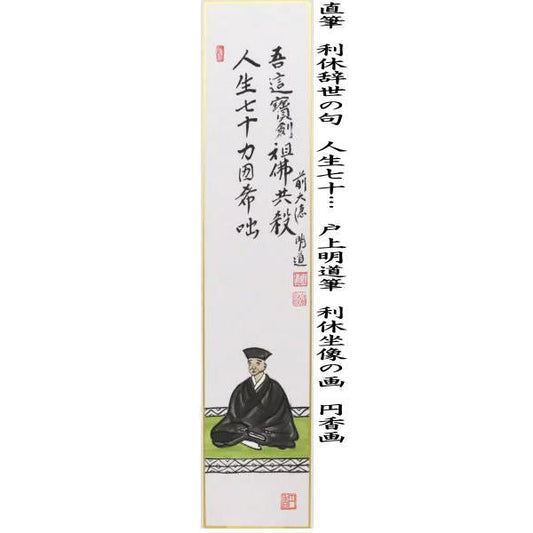 直筆 利休辞世の句 人生七十… 戸上明道筆 利休坐像の画 円香画
人生七十力因希咄
吾這寶剣祖佛共殺
前大徳 明道